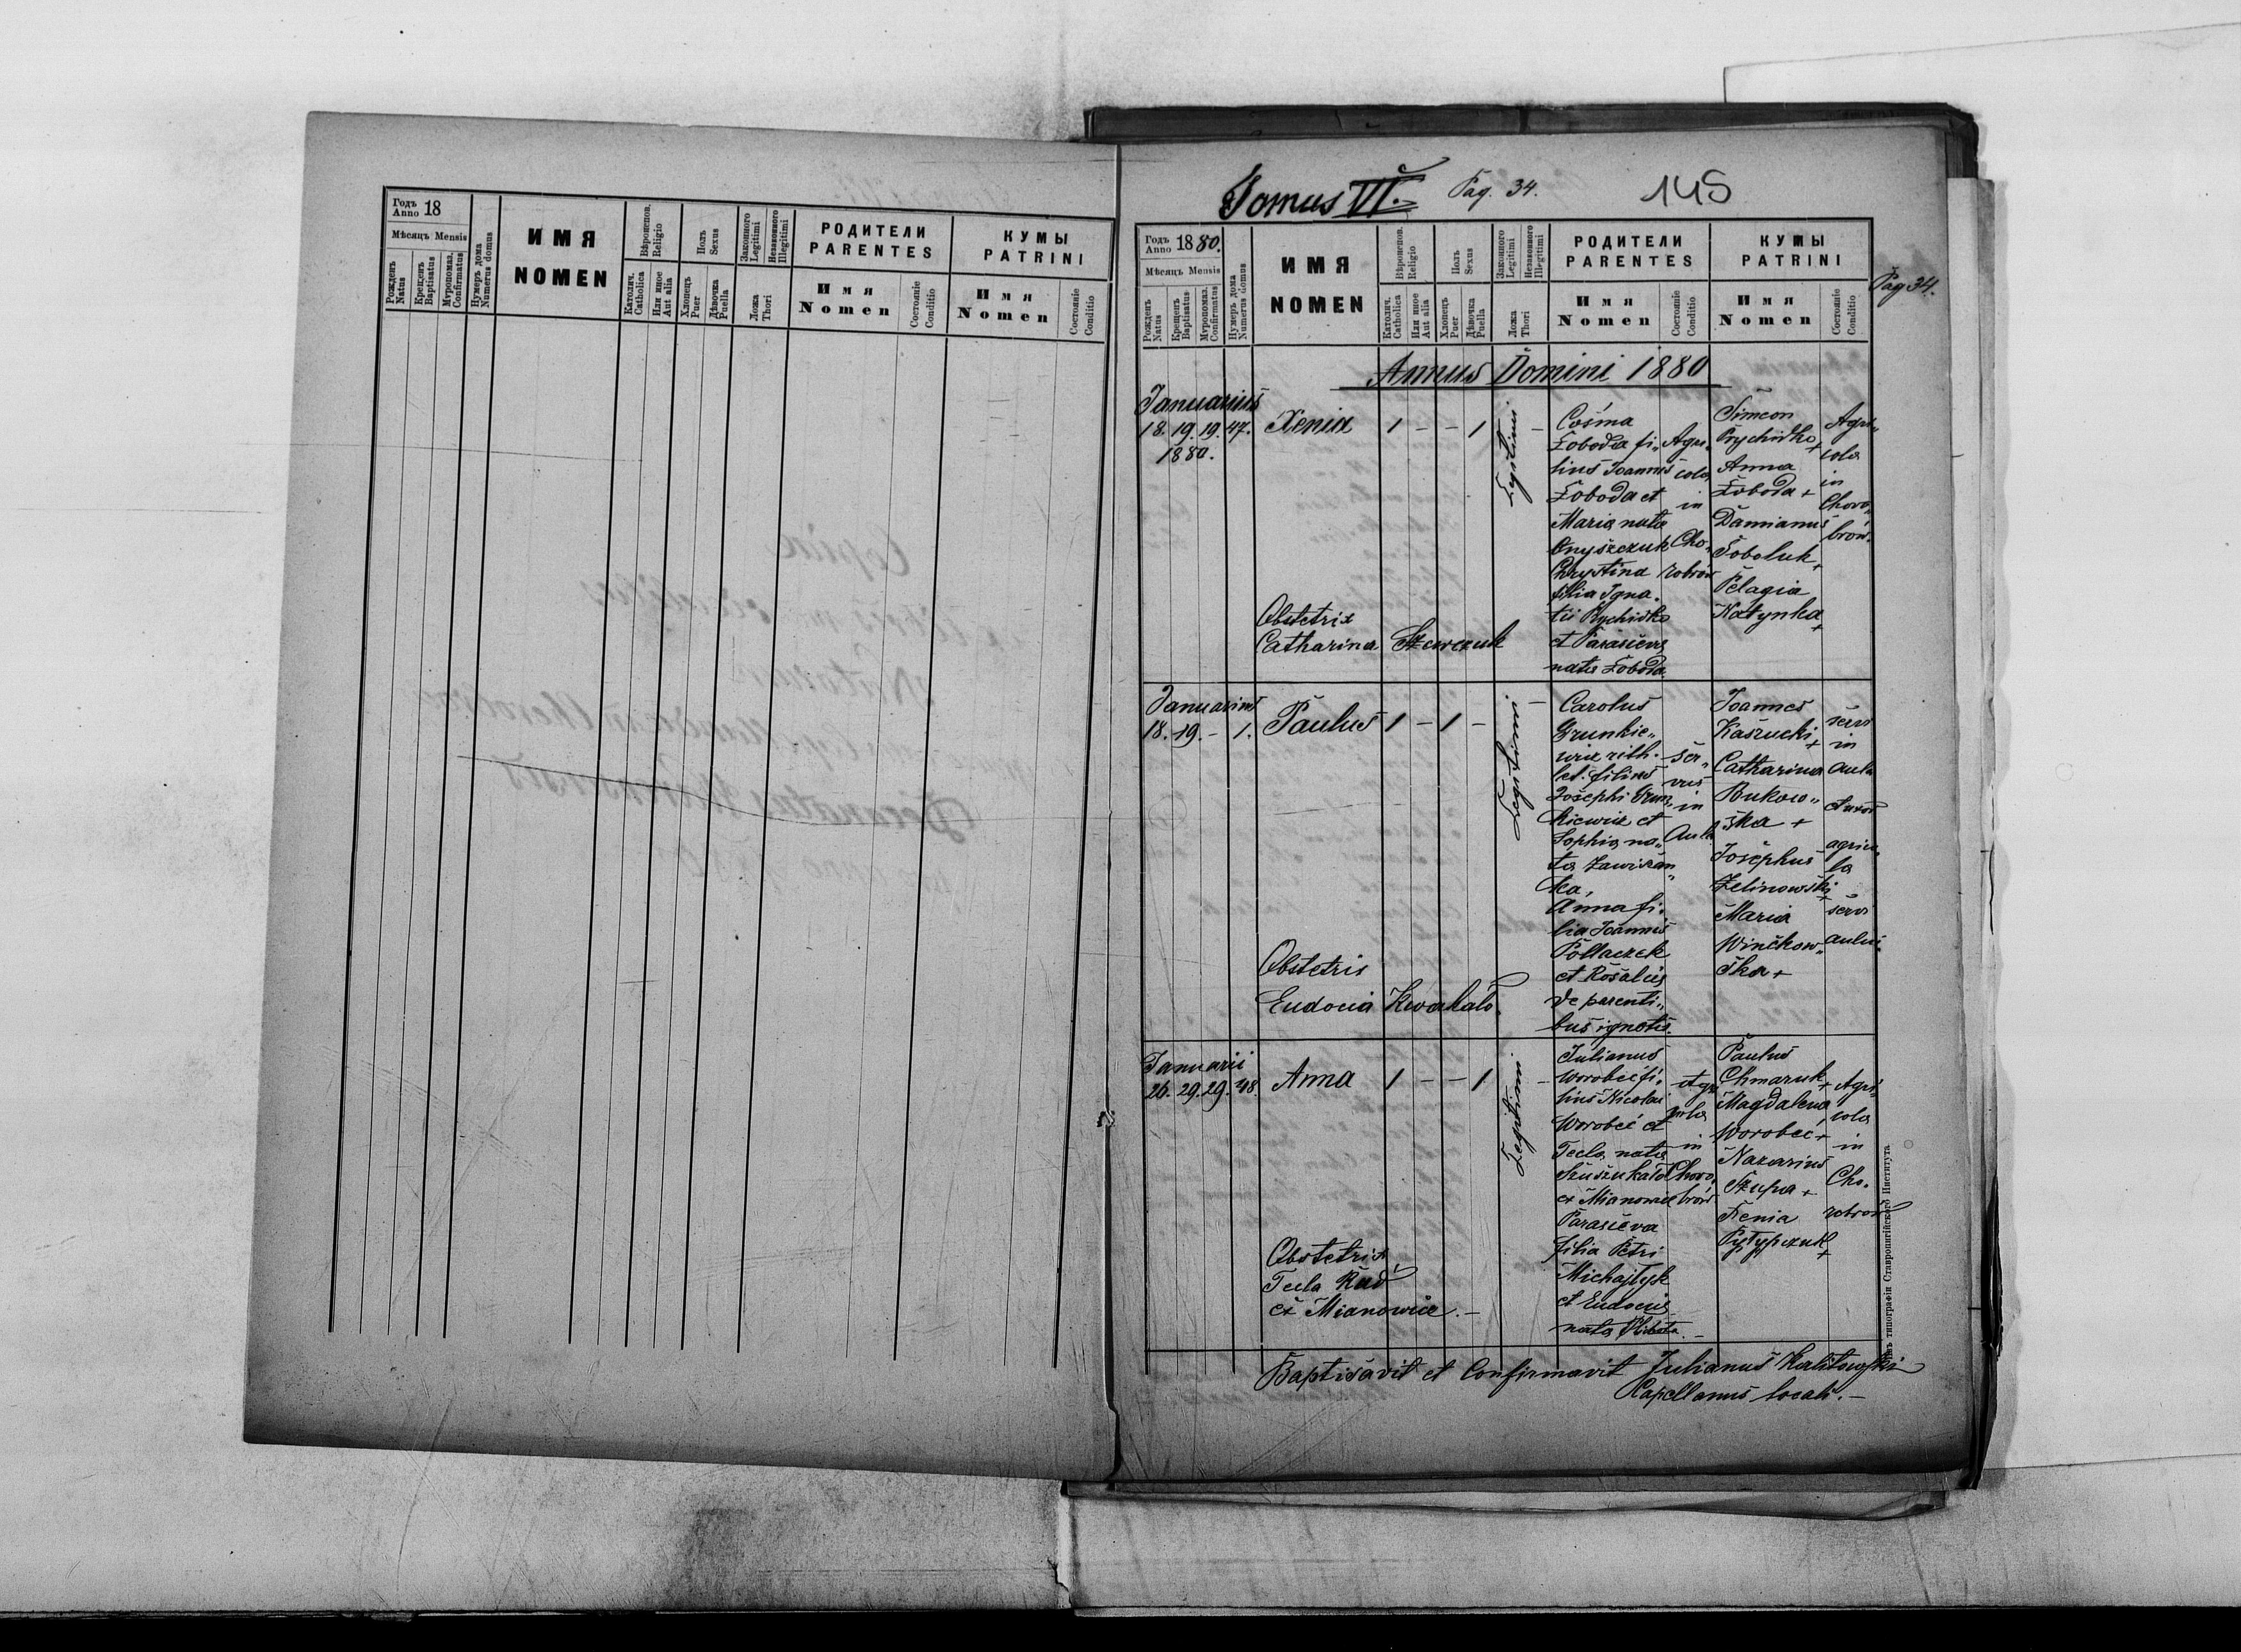 Годъ Anno 18
Мѣсяцъ Mensis
Рожденъ Natus
Крещенъ Baptisatus
Мѵропомаз. Confirmatus
Нумеръ дома Numerus domus
ИМЯ
NOMEN
Вѣроиспов. Religio
Католич. Catholica
Или иное Aut alia
Полъ Sexus
Хлопецъ Puer
Дѣвочка Puella
Законного Legitimi
Незаконного Illegitimi
Ложа Thori
РОДИТЕЛИ
PARENTES
Имя
Nomen
Состояніе Conditio
КУМЫ
PATRINI
Имя
Nomen
Состояніе Conditio
Tomus VI. Pag. 34. 145
Годъ Anno 1880.
Мѣсяцъ Mensis
Рожденъ Natus
Крещенъ Baptisatus
Мѵропомаз. Confirmatus
Нумеръ дома Numerus domus
ИМЯ
NOMEN
Вѣроиспов. Religio
Католич. Catholica
Или иное Aut alia
Полъ Sexus
Хлопецъ Puer
Дѣвочка Puella
Законного Legitimi
Незаконного Illegitimi
Ложа Thori
РОДИТЕЛИ
PARENTES
Имя
Nomen
Состояніе Conditio
КУМЫ
PATRINI
Имя
Nomen
Состояніе Conditio
Pag 34.
Annus Domini 1880
Januarius
18. 19. 19. 47. Xenia 1 - - 1 Legitimi -
1880.
Cosma
Łoboda fi„
lius Joannis
Łoboda et
Maria nata
Onyszczuk
Chrystina
filia Igna.
tii Prychidko
et Parasceva
nata Łoboda
Agri„
cola
in
Cho„
robrów
Simeon
Prychidko +
Anna
Łoboda +
Damianus
Soboluk +
Pelagia
Katynka +
Agri„
cola
in
Choro„
brów.
Obstetrix
Catharina Szewczuk
Januarius
18. 19. - 1. Paulus 1 - 1 - Legitimi -
Carolus
Grunkie„
wicz rith.
lat. filius
Josephi Grun„
kiewicz et
Sophia na„
ta Zawiszan„
ka,
Anna fi.
lia Joannis
Pollaczek
et Rosalia
de parenti„
bus ignotis.
ser„
vus
in
Aula
Joannes
Kaszucki +
Catharina
Bukow„
ska +
Josephus
Zelinowski +
Maria
Winckow„
ska +
servi
in
aula
agrico„
la
servi
aulici.
Obstetrix
Eudocia Kwakało.
Januarii
26. 29. 29. 48. Anna 1 - - 1 Legitimi -
Julianus
Worobeć fi.
lius Nicolai
Worobeć et
Tecla nata
ex Mianowice
Parasceva
filia Petri
Michajłyk
et Eudocia
nata
Agri
cola
in
Choro„
brów
Paulus
Chmaruk +
Magdalena
Worobeć +
Nazarius
Szupa +
Xenia
Pyłypczuk +
Agri„
cola
in
Cho.
robrów
Obstetrix
Tecla Rud
ex Mianowice. -
Baptisavit et Confirmavit Julianus Kalitowski
Capellanus locali. -
Изъ типографіи Ставропигійского Института